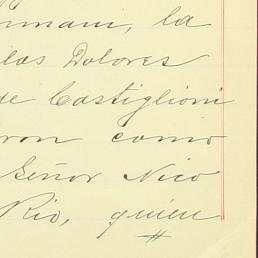 rmani, la
las Dolores
de Castiglioni
ron como
Señor Nico
Rio, quien